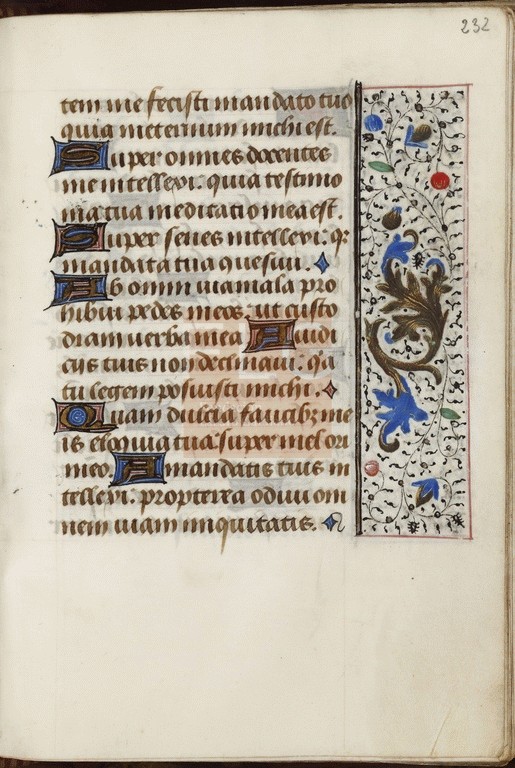 232
tem me fecisti mandato tuo
quia in eternum michi est.
Super omnes docentes
me intellexi: quia testimo
nia tua meditatio mea est.
Super senes intellexi: qr
mandata tua quesivi.
Ab omni via mala pro
hibui pedes meos: ut custo
diam verba mea A iudi
ciis tuis non declinavi: qa
tu legem posuisti michi.
Quam dulcia faucibz me
is eloquia tua: super mel ori
meo. A mandatis tuis in
tellexi: propterea odivi om
nem viam iniquitatis.